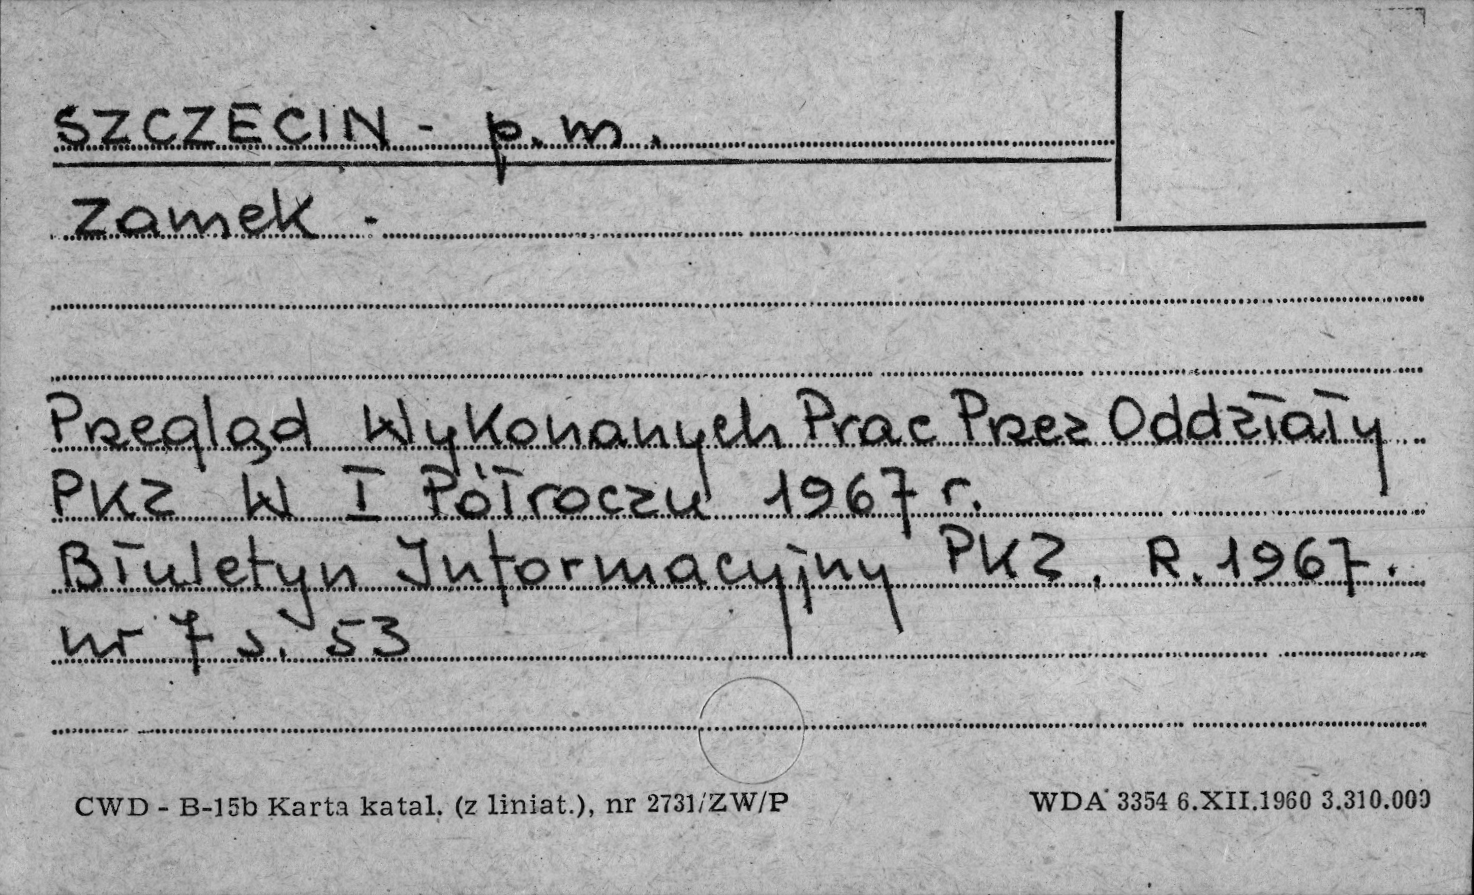 SZCZECIN - p.m.
Zamek -
Przegląd Wykonanych Prac Przez Oddziały
PKZ W I Półroczu 1967 r.
Błuletyn Informacyjny PKZ. R. 1967.
nr 7 s. 53
CWD - B-15b Karta katal. (z liniat.), nr 2731/ZW/P
WDA 3354 6.XII.1960 3.310.000